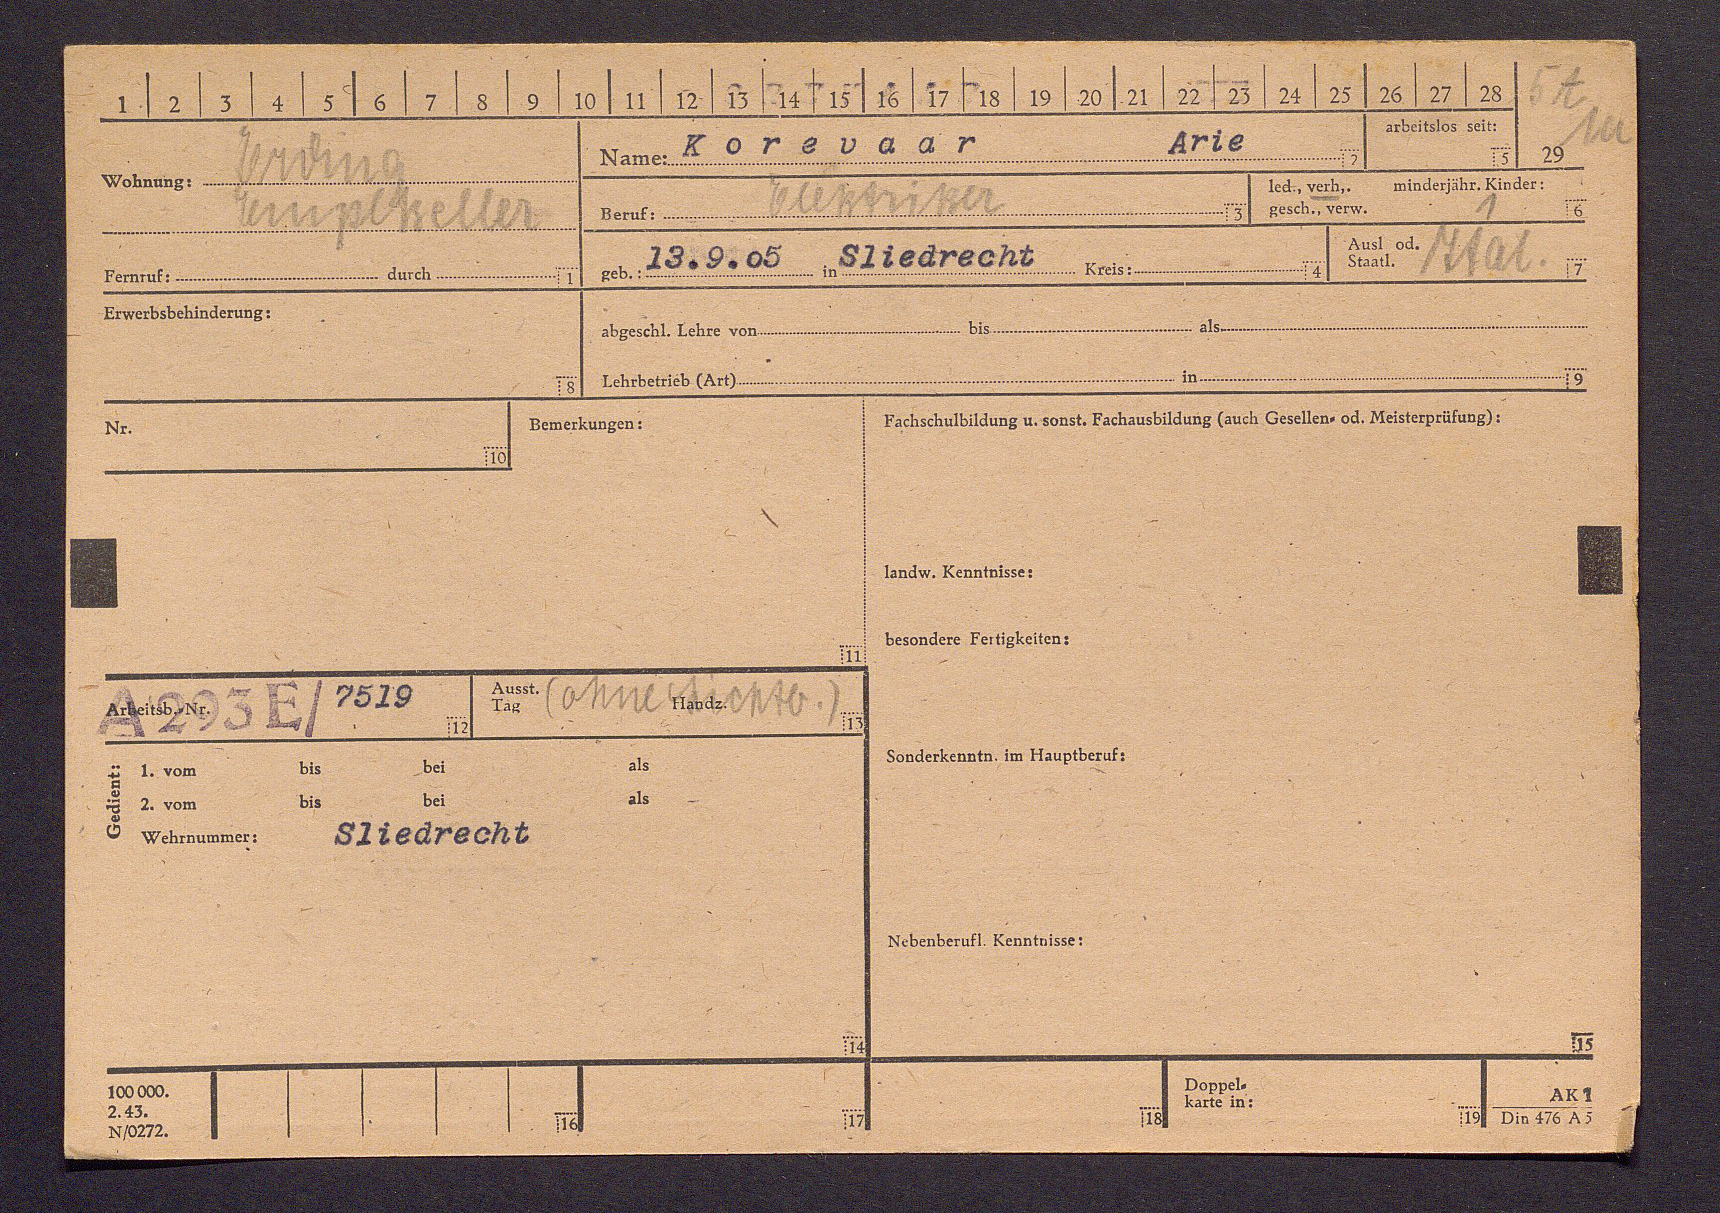 1 2 3 4 5 6 7 8 9 10 11 12 13 14 15 16 17 18 19 20 21 22 23 24 25 26 27 28
29
Wohnung: Erding
Empl Keller
Fernruf: durch 1
Name: Korevaar Arie 2
arbeitslos seit: 5
Beruf: Elektriker 3
led., verh,. minderjähr. Kinder:
gesch., verw. 1 6
geb.: 13.9.05 in Sliedrecht Kreis: 4
Ausl od.
Staatl. 7
Erwerbsbehinderung:
8
abgeschl. Lehre von bis als
Lehrbetrieb (Art) in 9
Nr.
10
Bemerkungen:
11
Fachschulbildung u. sonst. Fachausbildung (auch Gesellen- od. Meisterprüfung):
landw. Kenntnisse:
besondere Fertigkeiten:
Sonderkenntn. im Hauptberuf:
Nebenberufl. Kenntnisse:
15
Arbeitsb.-Nr. A 293 E/ 7519 12
Ausst.
Tag (ohne Lichtb.) Handz. 13
Gedient:
1. vom bis bei als
2. vom bis bei als
Wehrnummer: Sliedrecht
14
100 000.
2.43.
N/0272.
16
17
18
Doppel-
karte in:
19
AK 1
Din 476 A 5